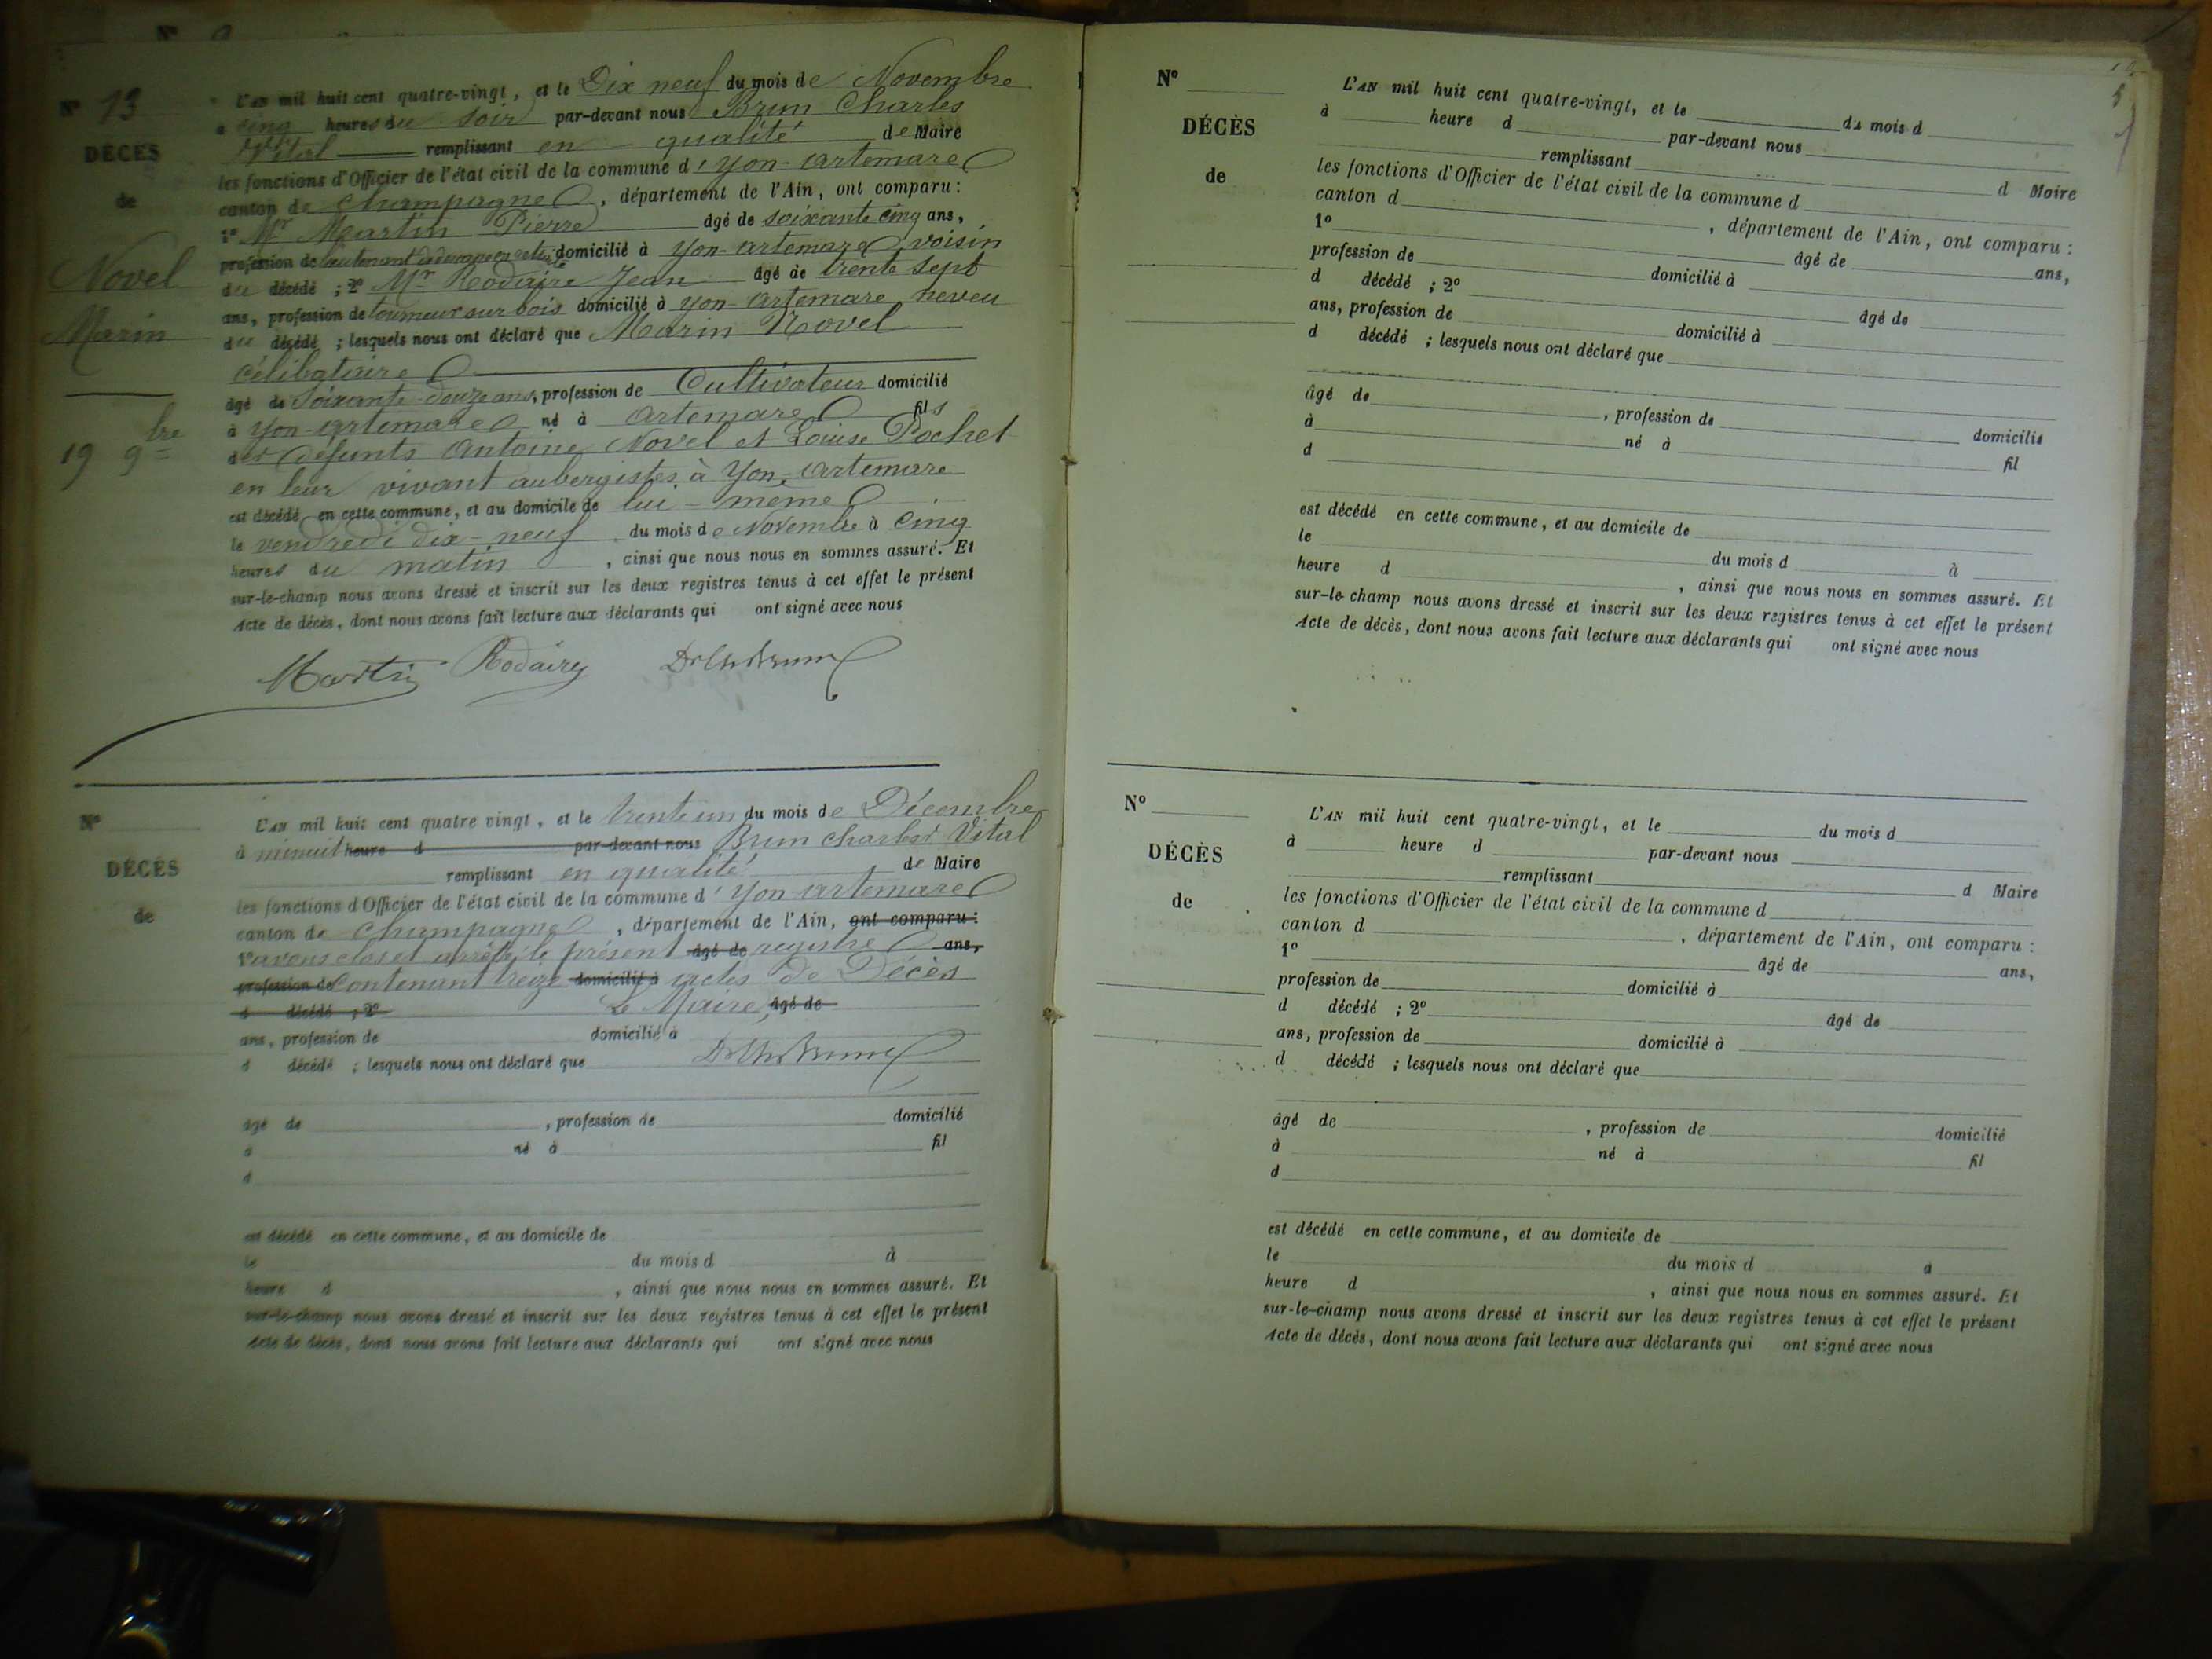 Nº 13
DÉCÈS
de
Novel
Marin
19 9bre
L'AN mil huit cent quatre-vingt, et le Dix neuf du mois de Novembre
à cinq heures du soir par-devant nous Brun Charles
Vital remplissant en qualité de Maire
les fonctions d'Officier de l'état civil de la commune d'yon-artemare
canton de Champagne, département de l'Ain, ont comparu:
1º Mr Martin Pierre âgé de soixante cinq ans,
profession de domicilié à yon-artemare voisin
du décédé ; 2º Mr Rodaire Jean âgé de trente sept
ans, profession de tourneur sur bois domicilié à yon-artemare neveu
du décédé ; lesquels nous ont déclaré que Marin Novel
célibataire
âgé de soixante-douze ans, profession de Cultivateur domicilié
à yon-artemare né à artemare fils
des défunts Antoine Novel et Louise Pochet
en leur vivant aubergistes à Yon-artemare
est décédé en cette commune, et au domicile de lui-meme
le vendredi dix-neuf du mois de Novembre à cinq
heures du matin, ainsi que nous nous en sommes assuré. Et
sur-le-champ nous avons dressé et inscrit sur les deux registres tenus à cet effet le présent
Acte de décès, dont nous avons fait lecture aux déclarants qui ont signé avec nous
Martin Rodaire Dr Ch Brun
Nº
DÉCÈS
de
L'AN mil huit cent quatre vingt, et le trente un du mois de Décembre
à minuit heure d par-devant nous Brun Charles Vital
remplissant en qualité de Maire
les fonctions d'Officier de l'état civil de la commune d'Yon artemare
canton de Champagne, département de l'Ain, ont comparu:
avons clos et arrêté le présent âgé de registre ans,
profession de Contenant treize domicilié à actes de Décès
d décédé ; 2º Le Maire, âgé de
ans, profession de domicilié à
d décédé ; lesquels nous ont déclaré que Dr Ch Brun
âgé de , profession de domicilié
à né à fil
d
est décédé en cette commune, et au domicile de
le du mois d à
heure d , ainsi que nous nous en sommes assuré. Et
sur-le-champ nous avons dressé et inscrit sur les deux registres tenus à cet effet le présent
Acte de décès, dont nous avons fait lecture aux déclarants qui ont signé avec nous
Nº
DÉCÈS
de
L'AN mil huit cent quatre-vingt, et le du mois d
à heure d par-devant nous
remplissant d Maire
les fonctions d'Officier de l'état civil de la commune d
canton d , département de l'Ain, ont comparu :
1º âgé de ans,
profession de domicilié à
d décédé ; 2º âgé de
ans, profession de domicilié à
d décédé ; lesquels nous ont déclaré que
âgé de , profession de domicilié
à né à fil
d
est décédé en cette commune, et au domicile de
le du mois d à
heure d , ainsi que nous nous en sommes assuré. Et
sur-le-champ nous avons dressé et inscrit sur les deux registres tenus à cet effet le présent
Acte de décès, dont nous avons fait lecture aux déclarants qui ont signé avec nous
Nº
DÉCÈS
de
L'AN mil huit cent quatre-vingt, et le du mois d
à heure d par-devant nous
remplissant d Maire
les fonctions d'Officier de l'état civil de la commune d
canton d , département de l'Ain, ont comparu :
1º âgé de ans,
profession de domicilié à
d décédé ; 2º âgé de
ans, profession de domicilié à
d décédé ; lesquels nous ont déclaré que
âgé de , profession de domicilié
à né à fil
d
est décédé en cette commune, et au domicile de
le du mois d à
heure d , ainsi que nous nous en sommes assuré. Et
sur-le-champ nous avons dressé et inscrit sur les deux registres tenus à cet effet le présent
Acte de décès, dont nous avons fait lecture aux déclarants qui ont signé avec nous